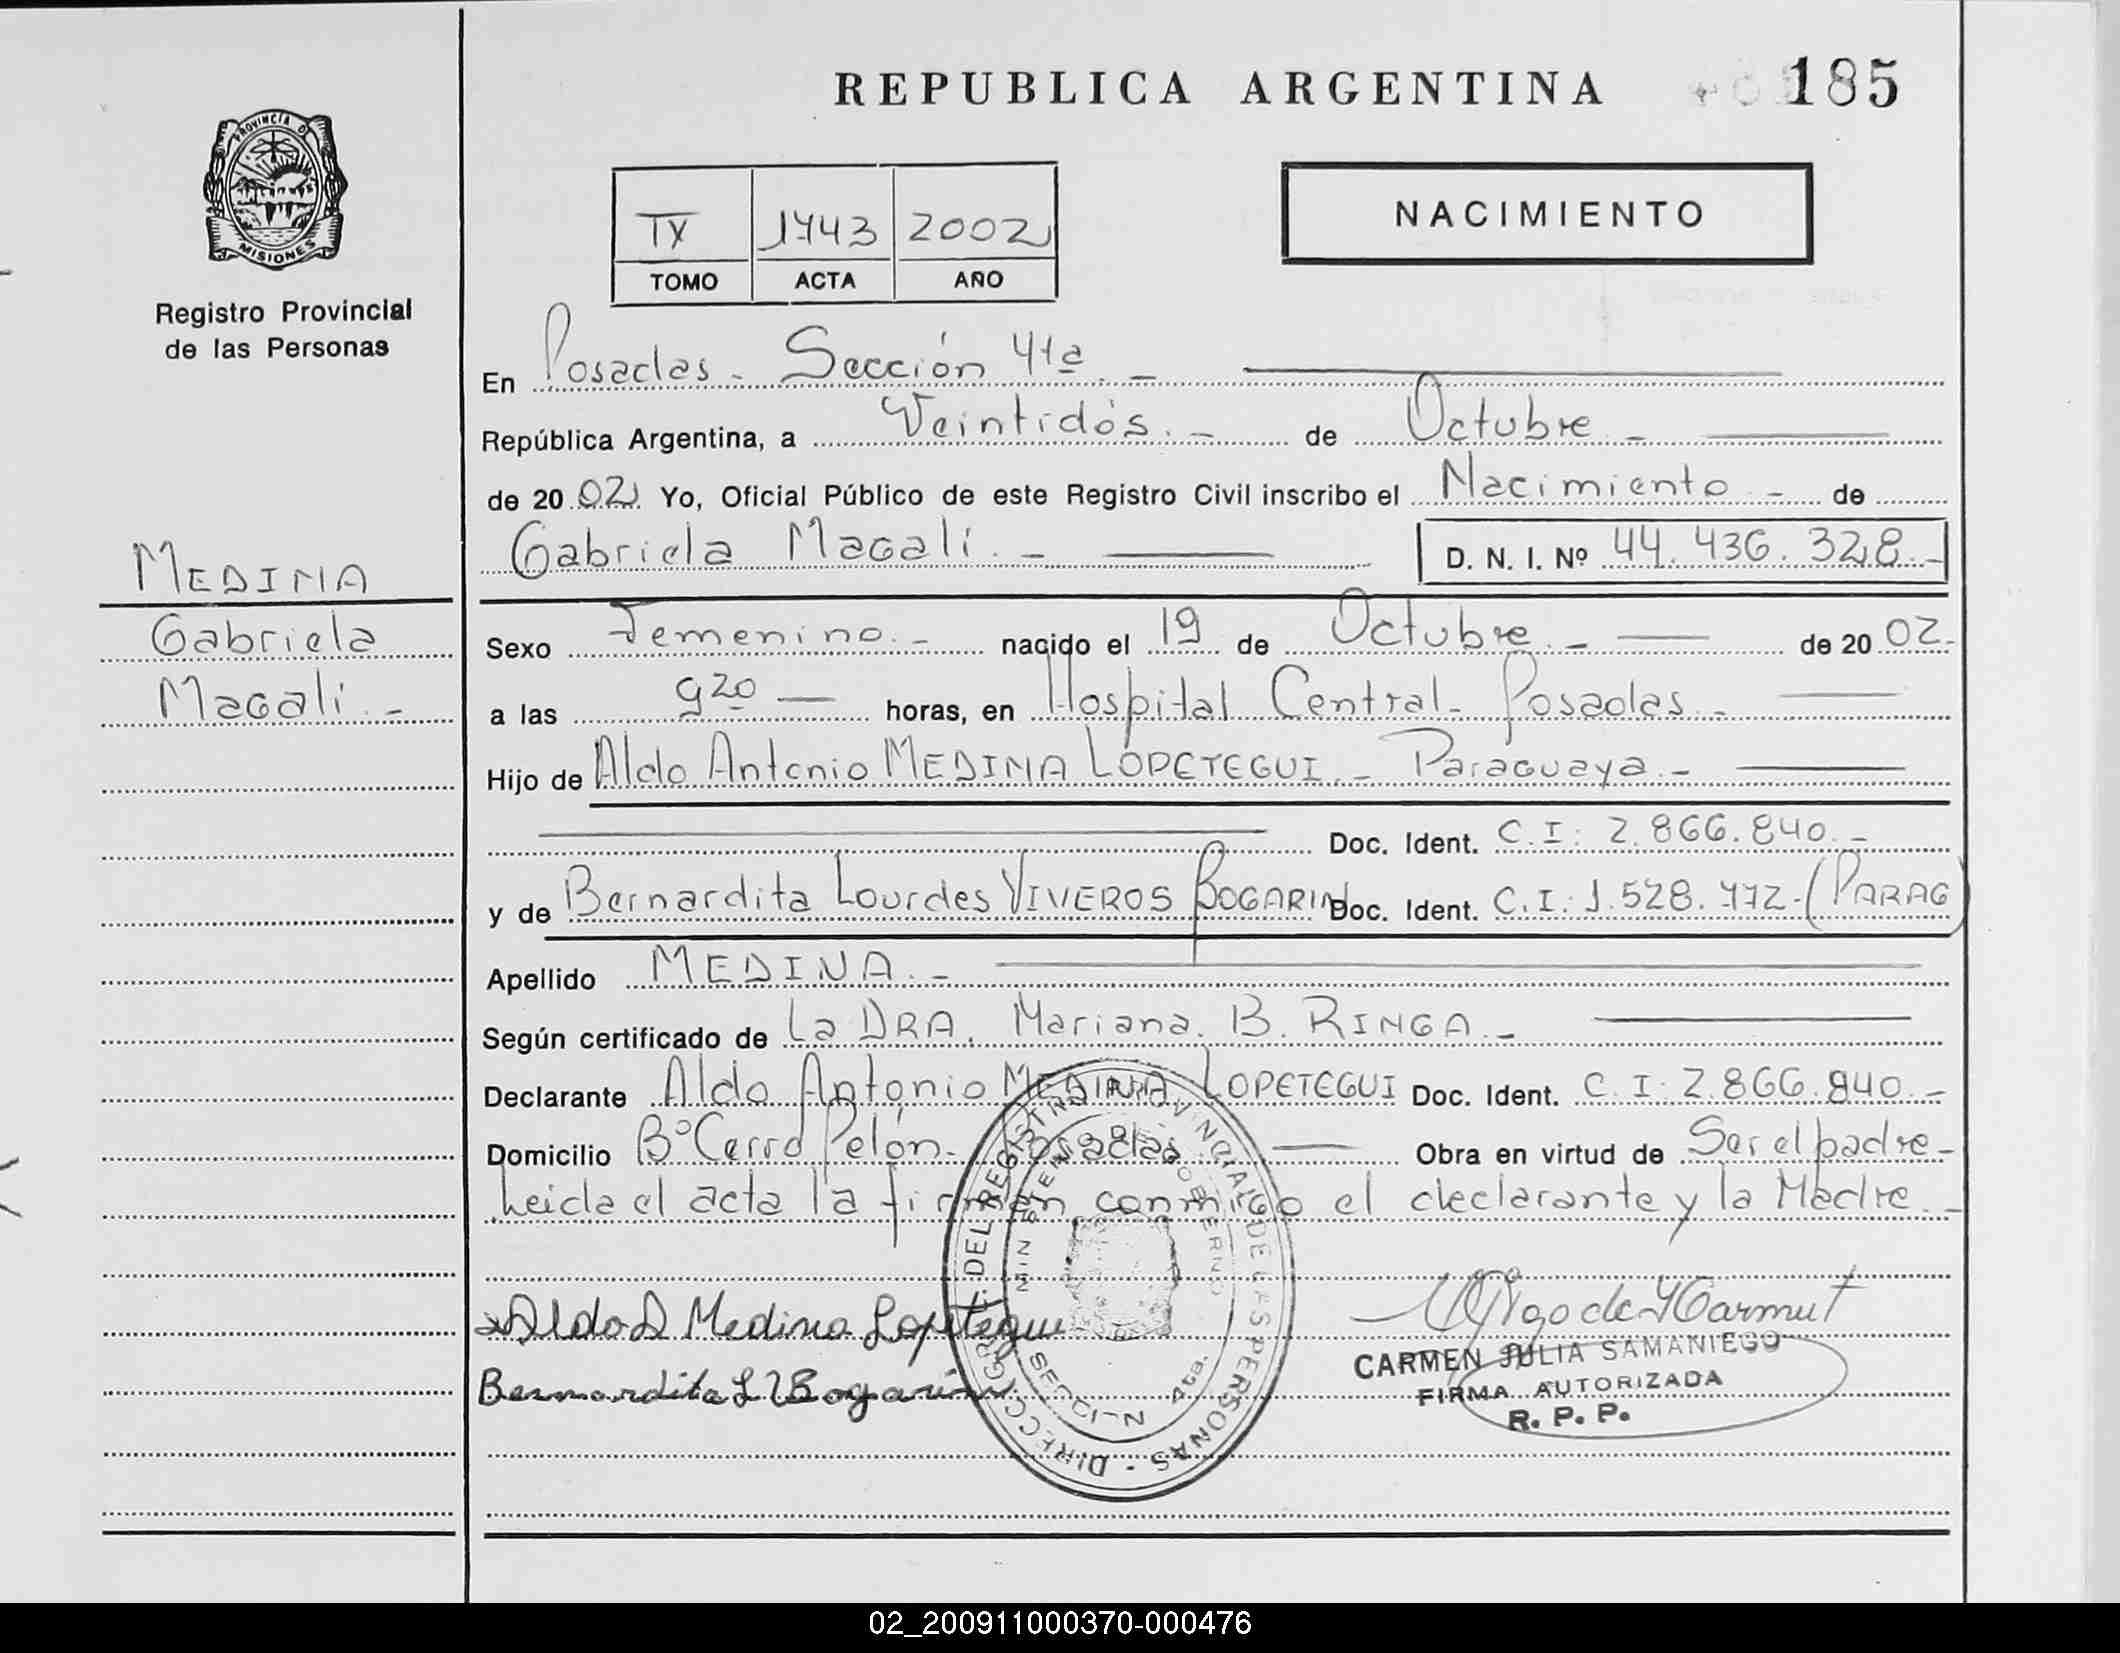 REPUBLICA ARGENTINA 185
PROVINCIA DE
MISIONES
Registro Provincial
de las Personas
NACIMIENTO
IX 1443 2002
TOMO ACTA AÑO
En Posadas - Sección 41a. -
República Argentina, a Veintidós. - de Octubre -
de 20 02 Yo, Oficial Público de este Registro Civil inscribo el Nacimiento - de
Gabriela Magali. - D. N. I. Nº 44.436.328.-
MEDINA
Gabriela
Magali. -
Sexo Femenino. - nacido el 19 de Octubre. - de 20 02.-
a las 9 20 — horas, en Hospital Central - Posadas -
Hijo de Aldo Antonio MEDINA LOPETEGUI - Paraguaya. -
Doc. Ident. C.I: 2.866.840. -
y de Bernardita Lourdes VIVEROS BOGARIN Doc. Ident. C.I: 1.528.772-(PARAG)
Apellido MEDINA. -
Según certificado de La DRA. Mariana. B. RINGA. -
Declarante Aldo Antonio MEDINA LOPETEGUI Doc. Ident. C.I: 2.866.840. -
Domicilio Bº Cerro Pelón - Posadas Obra en virtud de Ser el padre -
Leida el acta la firman conmigo el declarante y la Madre -
Aldo A Medina Lopetegui
Bernardita L V Bogarín
DIRECC. GRAL. DEL REGISTRO PROVINCIAL DE LAS PERSONAS -
MINISTERIO GOBIERNO
SECCION 4ta.
CARMEN JULIA SAMANIEGO
FIRMA AUTORIZADA
R. P. P.
02_200911000370-000476